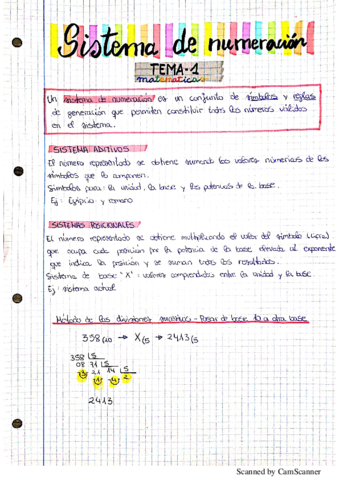 Sistema de numeración
TEMA-1
matemáticas
Un sistema de numeración es un conjunto de símbolos y reglas
de generación que permiten constituir todos los números válidos
en el sistema.
SISTEMA ADITIVOS
El número representado se obtiene sumando los valores numéricos de los
símbolos que lo componen.
Símbolos para: la unidad, la base y las potencias de la base.
Ej: Egipcio y romano
SISTEMAS POSICIONALES
El número representado se obtiene multiplicando el valor del símbolo (cifra)
que ocupa cada posición por la potencia de la base elevada al exponente
que indica la posición y se suman todos los resultados.
Sistema de base "X": valores comprendidos entre la unidad y la base.
Ej: sistema actual
Método de las divisiones sucesivas - Pasar de base 10 a otra base
358(10 → X(5 → 2413(5
358 5
08 71 5
3 21 14 5
1 4 2
2413
Scanned by CamScanner